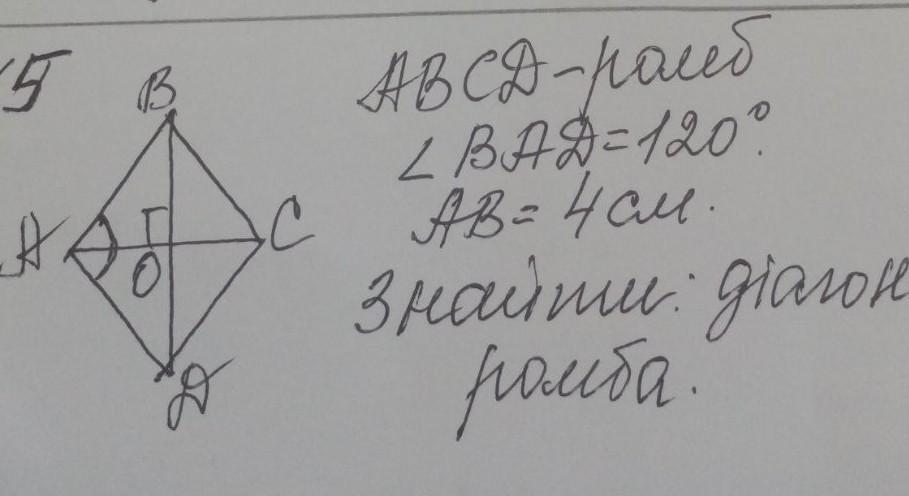 5
B
A
C
O
D
ABCD – ромб
∠BAD = 120°.
AB = 4 см.
Знайти: діагон
ромба.